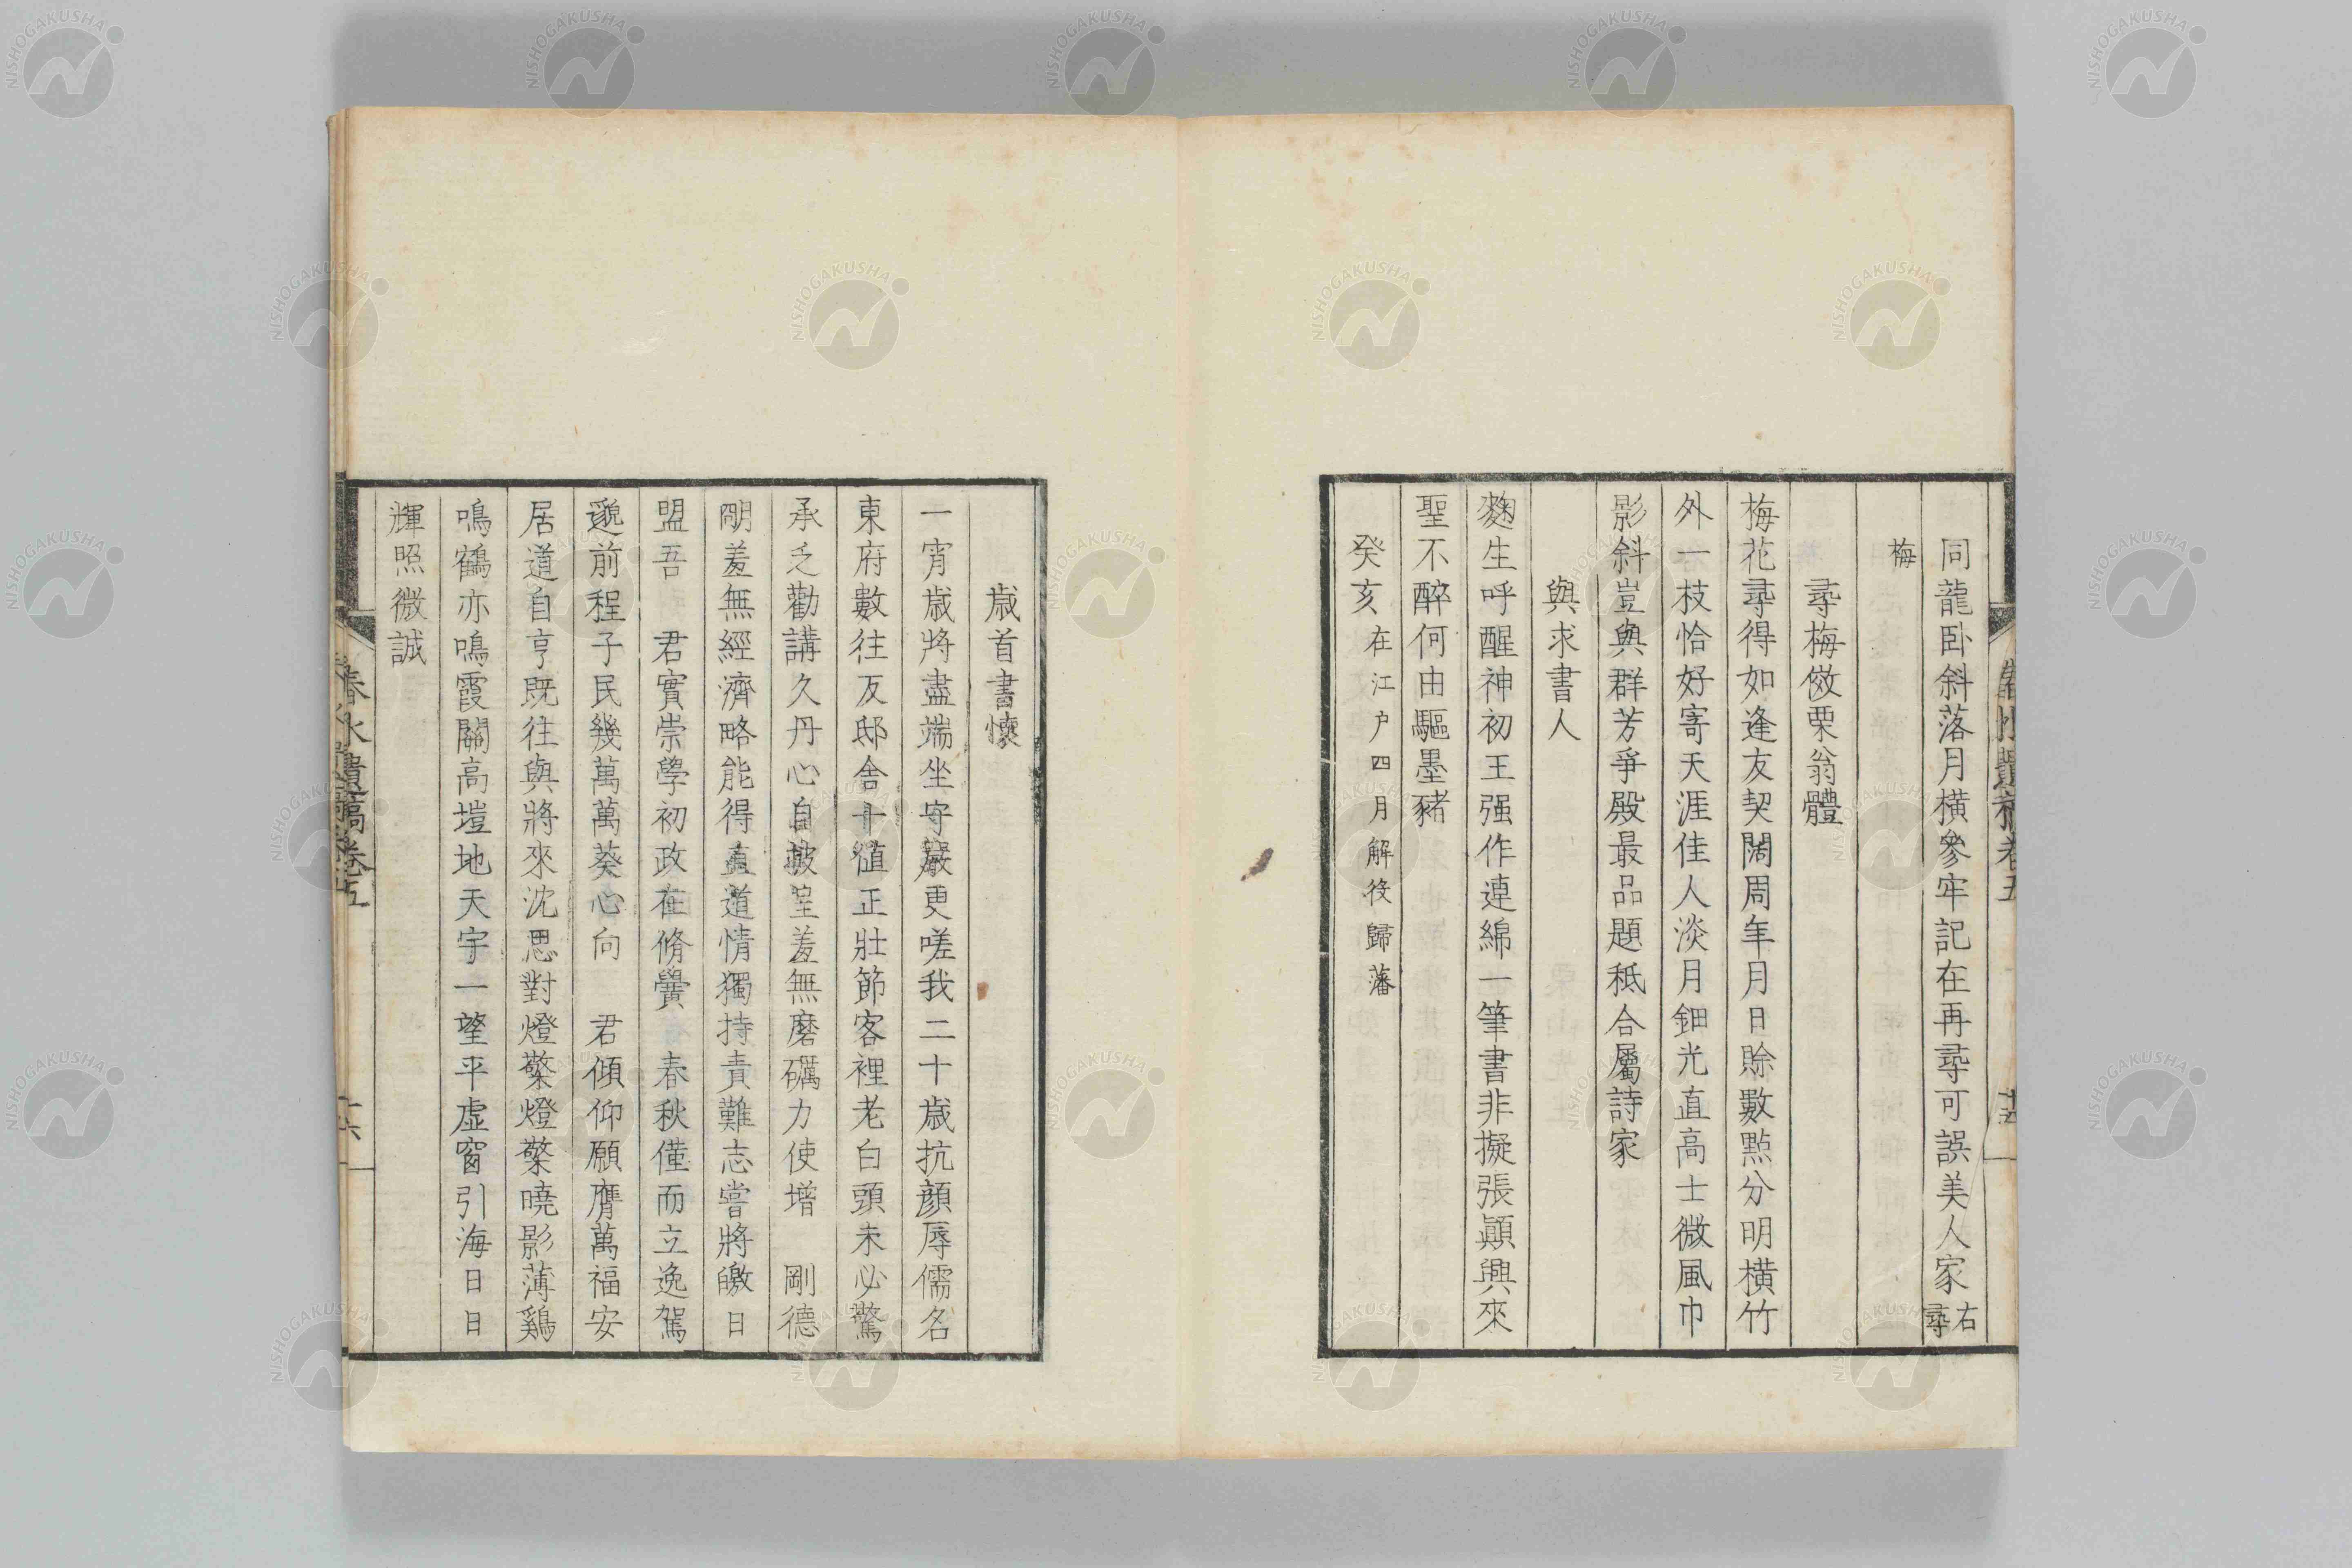 同龍卧斜落月橫參牢記在再尋可誤美人家右尋
梅
尋梅傚栗翁體
梅花尋得如逢友契闊周年月日賒數點分明橫竹
外一枝恰好寄天涯佳人淡月鈿光直高士微風巾
影斜豈與群芳爭殿最品題秖合屬詩家
與求書人
麴生呼醒神初王强作連綿一筆書非擬張顚興來
聖不醉何由驅墨豬
癸亥在江户四月解役歸藩
歲首書懷
一宵歲將盡端坐守嚴更嗟我二十歲抗顏辱儒名
東府數往反邸舍十値正壯節客裡老白頭未必驚
承乏勸講久丹心自披呈羞無磨礪力使增 剛德
朙羞無經濟略能得直道情獨持責難志嘗將皦日
盟吾 君實崇學初政在脩黌 春秋僅而立逸駕
邈前程子民幾萬萬葵心向 君傾仰願膺萬福安
居道自亨既往與將來沈思對燈檠燈檠曉影薄鷄
鳴鶴亦鳴霞關高塏地天宇一望平虛窗引海日日
輝照微誠
春水遺稿卷五
十六
春水遺稿卷五
十五
NISHOGAKUSHA